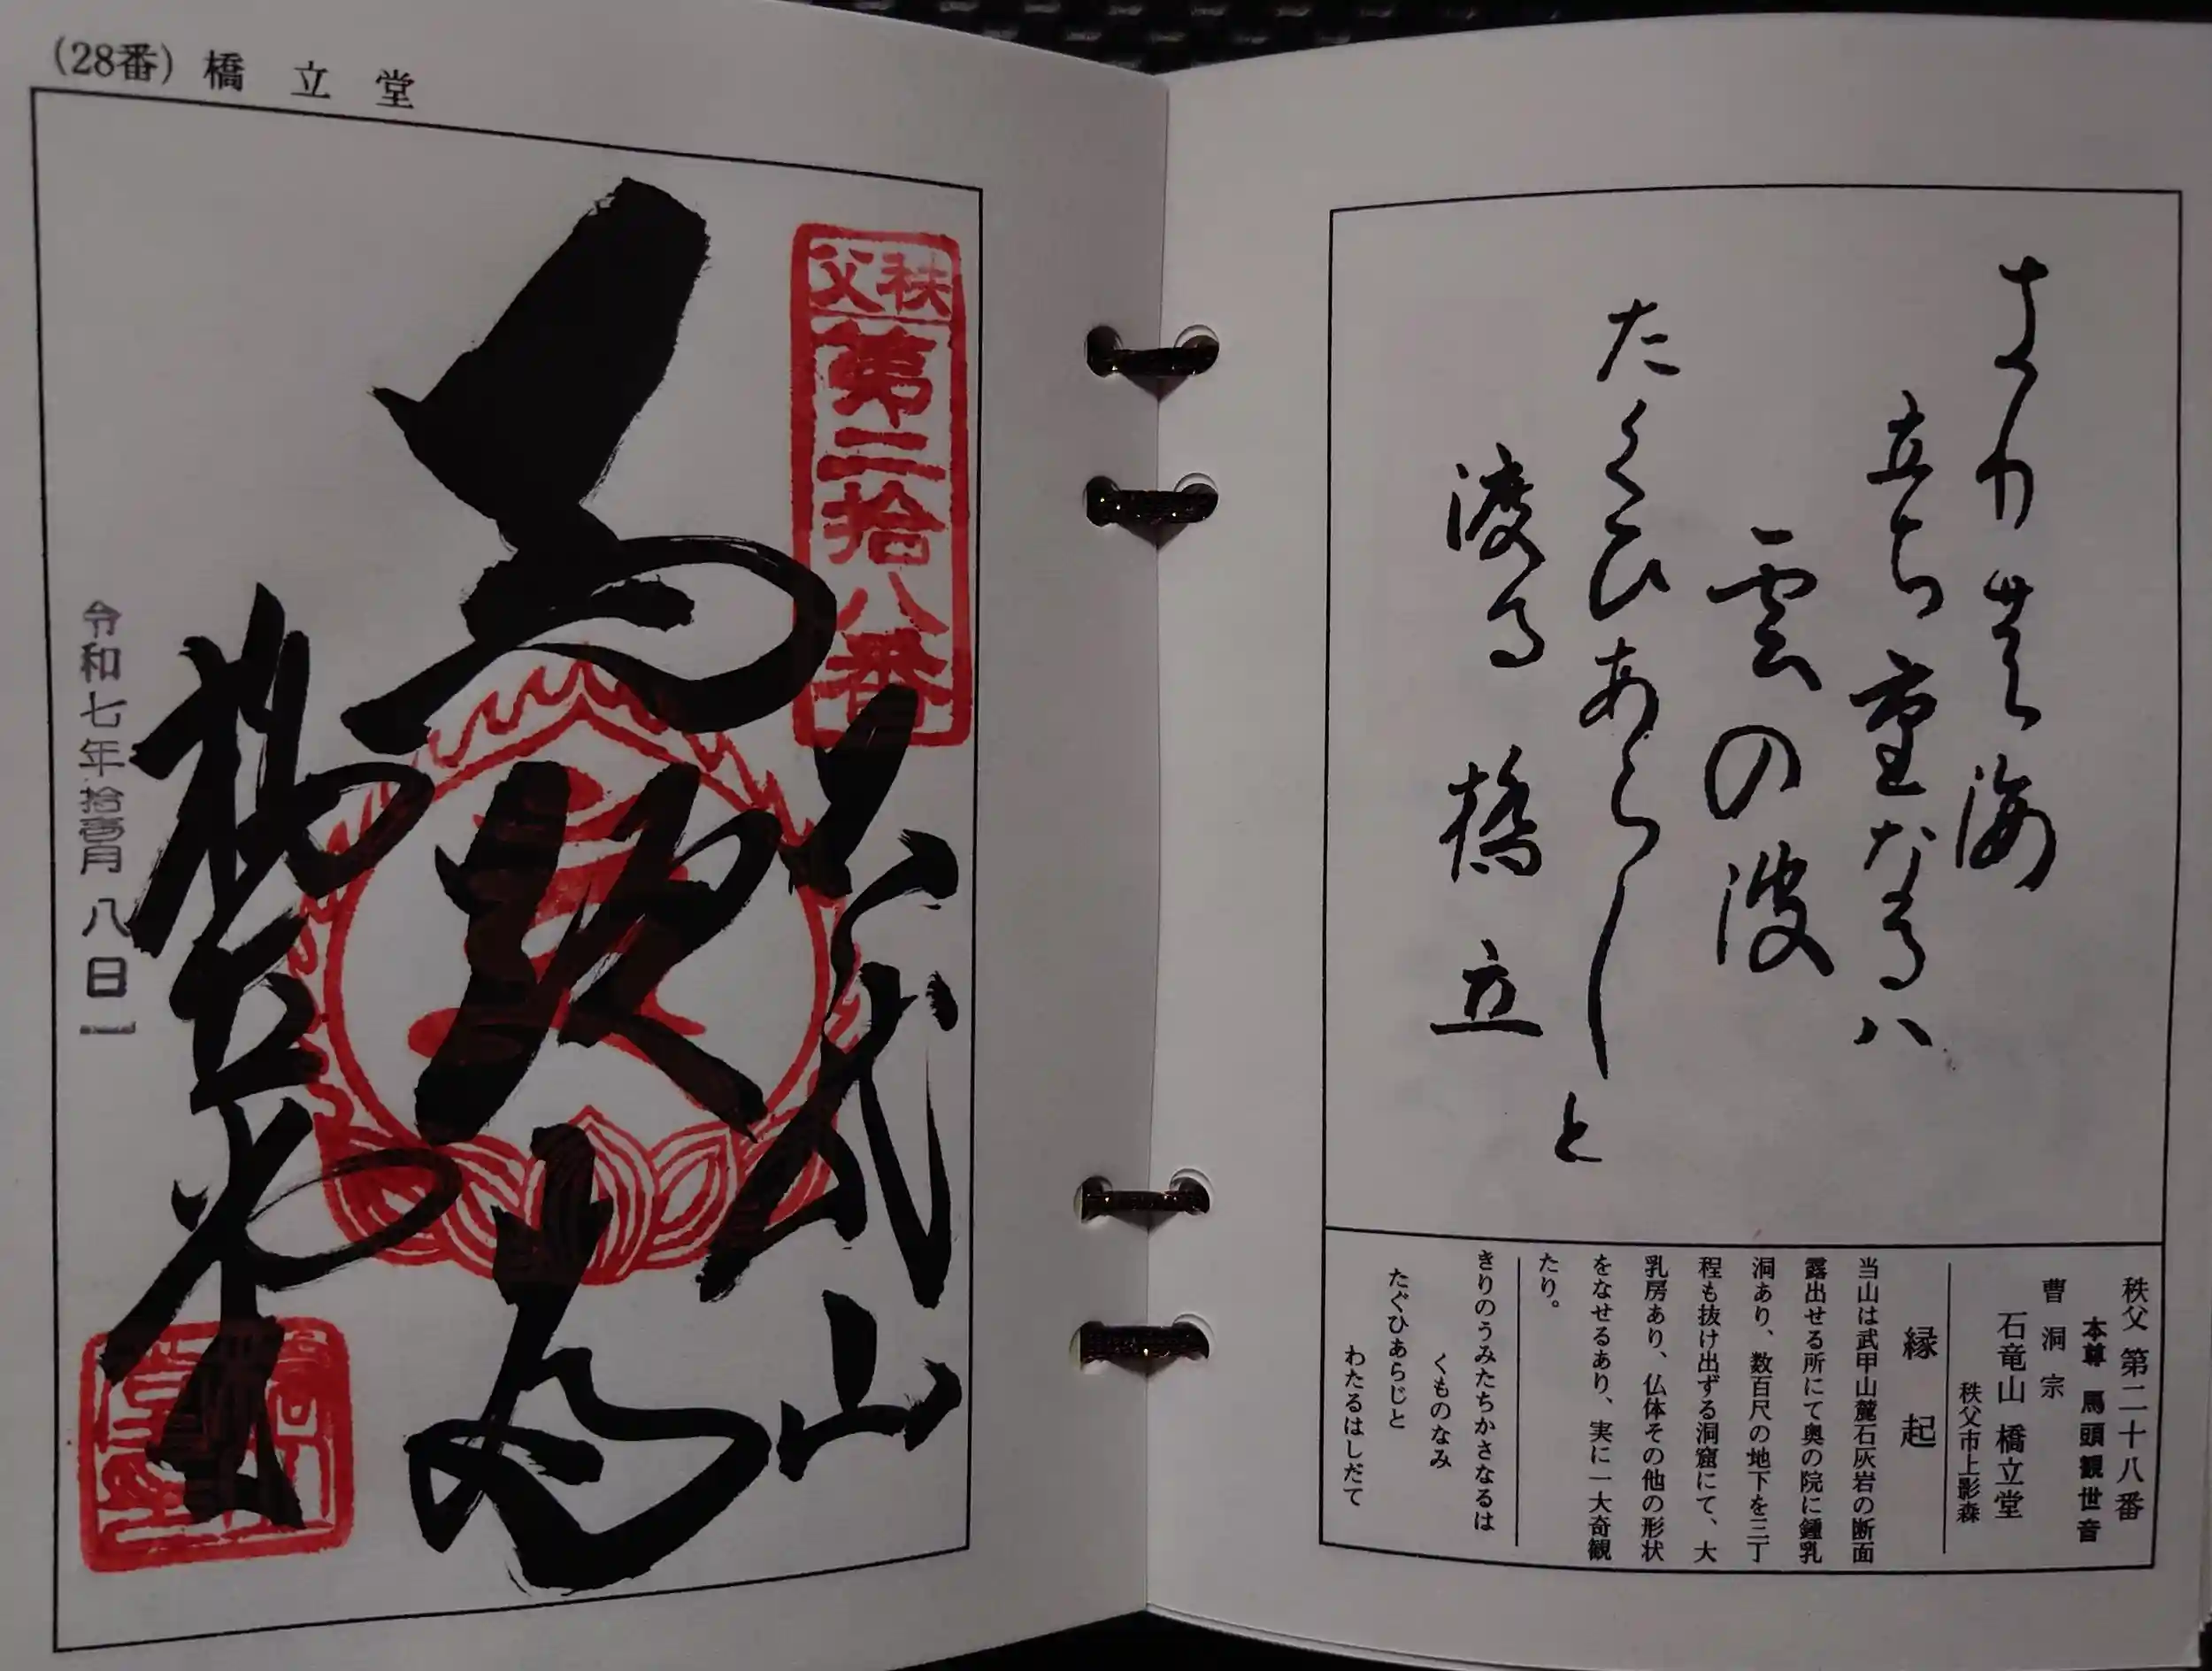 (28番) 橋立堂
秩父
第二拾八番
石竜山
馬頭尊
橋立寺
令和七年拾壱月八日
立ち重なる八
雲の波
たくひあらしと
渡る橋立
秩父第二十八番
本尊 馬頭観世音
曹洞宗
石竜山 橋立堂
秩父市上影森
縁起
当山は武甲山麓石灰岩の断面
露出せる所にて奥の院に鍾乳
洞あり、数百尺の地下を三丁
程も抜け出ずる洞窟にて、大
乳房あり、仏体その他の形状
をなせるあり、実に一大奇観
たり。
きりのうみたちかさなるは
くものなみ
たぐひあらじと
わたるはしだて